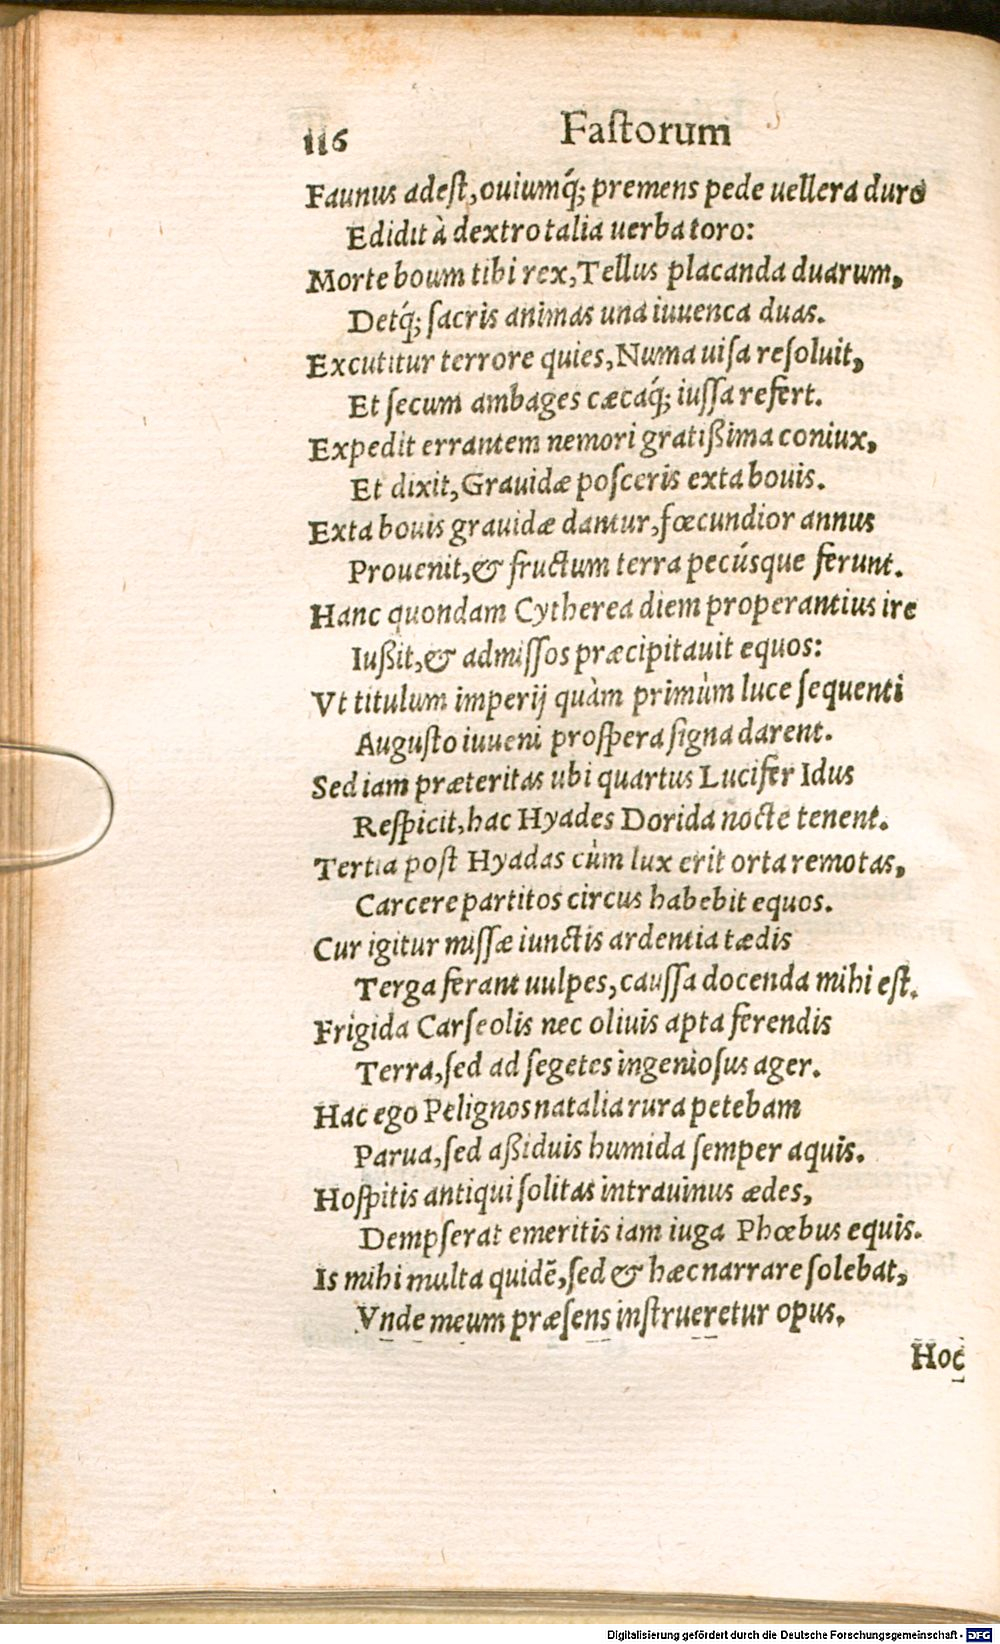 116 Faſtorum
Faunus adeſt, ouiumq́; premens pede uellera duro
Edidit à dextro talia uerba toro:
Morte boum tibi rex, Tellus placanda duarum,
Detq́; ſacris animas una iuuenca duas.
Excutitur terrore quies, Numa uiſa reſoluit,
Et ſecum ambages cæcaq́; iuſſa refert.
Expedit errantem nemori gratißima coniux,
Et dixit, Grauidæ poſceris exta bouis.
Exta bouis grauidæ dantur, fœcundior annus
Prouenit, & fructum terra pecúsque ferunt.
Hanc quondam Cytherea diem properantius ire
Iußit, & admiſſos præcipitauit equos:
Vt titulum imperij quàm primùm luce ſequenti
Auguſto iuueni proſpera ſigna darent.
Sed iam præteritas ubi quartus Lucifer Idus
Reſpicit, hac Hyades Dorida nocte tenent.
Tertia poſt Hyadas cùm lux erit orta remotas,
Carcere partitos circus habebit equos.
Cur igitur miſſæ iunctis ardentia tædis
Terga ferant uulpes, cauſſa docenda mihi eſt.
Frigida Carſeolis nec oliuis apta ferendis
Terra, ſed ad ſegetes ingenioſus ager.
Hac ego Pelignos natalia rura petebam
Parua, ſed aßiduis humida ſemper aquis.
Hoſpitis antiqui ſolitas intrauimus ædes,
Dempſerat emeritis iam iuga Phœbus equis.
Is mihi multa quidē, ſed & hæc narrare ſolebat,
Vnde meum præſens inſtrueretur opus.
Hoc
Digitalisierung gefördert durch die Deutsche Forschungsgemeinschaft - DFG